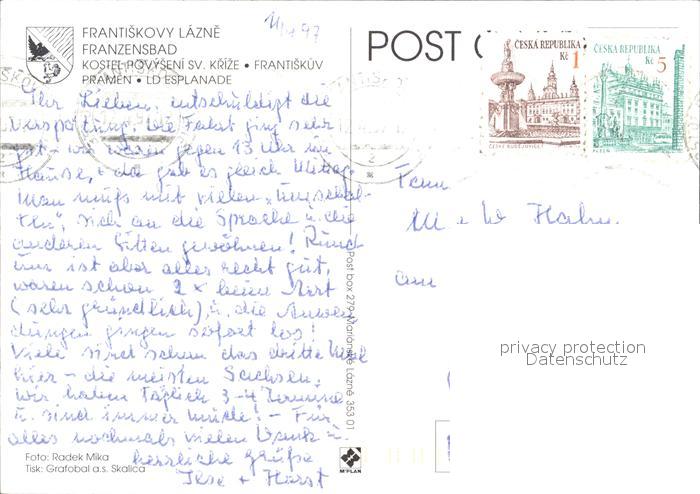 11/4 97
FRANTIŠKOVY LÁZNĚ
FRANZENSBAD
KOSTEL POVÝŠENÍ SV. KŘÍŽE • FRANTIŠKŮV
PRAMEN • LD ESPLANADE
Ihr Lieben, entschuldigt die
Verspätung. Die Fahrt ging sehr
gut – wir waren gegen 13 Uhr im
Hause, + da gab es gleich Mittag.
Man muß mit vielen „Umschal-
ten", sich an die Sprache u. die
anderen Sitten gewöhnen! Rund-
um ist aber alles recht gut,
waren schon 2 x beim Arzt
(sehr gründlich), u. die Anwen-
dungen gingen sofort los!
Viele sind schon das dritte Mal
hier – die meisten Sachsen,
wir haben täglich 3-4 Termine
u. sind immer müde! – Für
alles nochmals vielen Dank u.
herzliche Grüße
Ilse + Horst
Foto: Radek Mika
Tisk: Grafobal a.s. Skalica
Post box 279 Mariánské Lázně 353 01
M*PLAN
POST C
ČESKÁ REPUBLIKA
Kč 1
ČESKÉ BUDĚJOVICE
ČESKÁ REPUBLIKA
Kč 5
PLZEŇ
Fam
Hahn.
am
privacy protection
Datenschutz